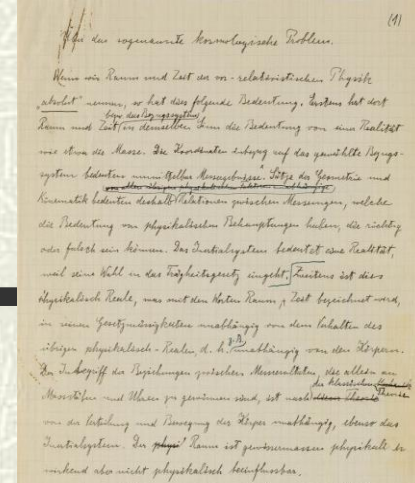 (1)
Über das sogenannte kosmologische Problem.
Wenn wir Raum und Zeit der vor-relativistischen Physik
„absolut" nennen, so hat das folgende Bedeutung. Erstens hat dort
bezw. das Bezugssystem
Raum und Zeit in demselben Sinn die Bedeutung von einer Realität
wie etwa die Masse. Die Koordinaten inbezug auf das gewählte Bezugs-
system bedeuten unmittelbar Messergebnisse. Sätze der Geometrie und
Kinematik bedeuten deshalb Relationen zwischen Messungen, welche
die Bedeutung von physikalischen Behauptungen haben, die richtig
oder falsch sein können. Das Inertialsystem bedeutet eine Realität,
weil seine Wahl in das Trägheitsgesetz eingeht. Zweitens ist dies
physikalisch Reale, was mit den Worten Raum, Zeit bezeichnet wird,
in seinen Gesetzmässigkeiten unabhängig von dem Verhalten des
übrigen physikalisch-Realen, d. h. z.B. unabhängig von den Körpern.
Der Inbegriff der Beziehungen zwischen Messresultaten, das allein an
der klassischen Theorie
Massstäben und Uhren zu gewinnen sind, ist nach
von der Verteilung und Bewegung der Körper unabhängig, ebenso das
Inertialsystem. Der Raum ist gewissermassen physikalisch
wirkend aber nicht physikalisch beeinflussbar.